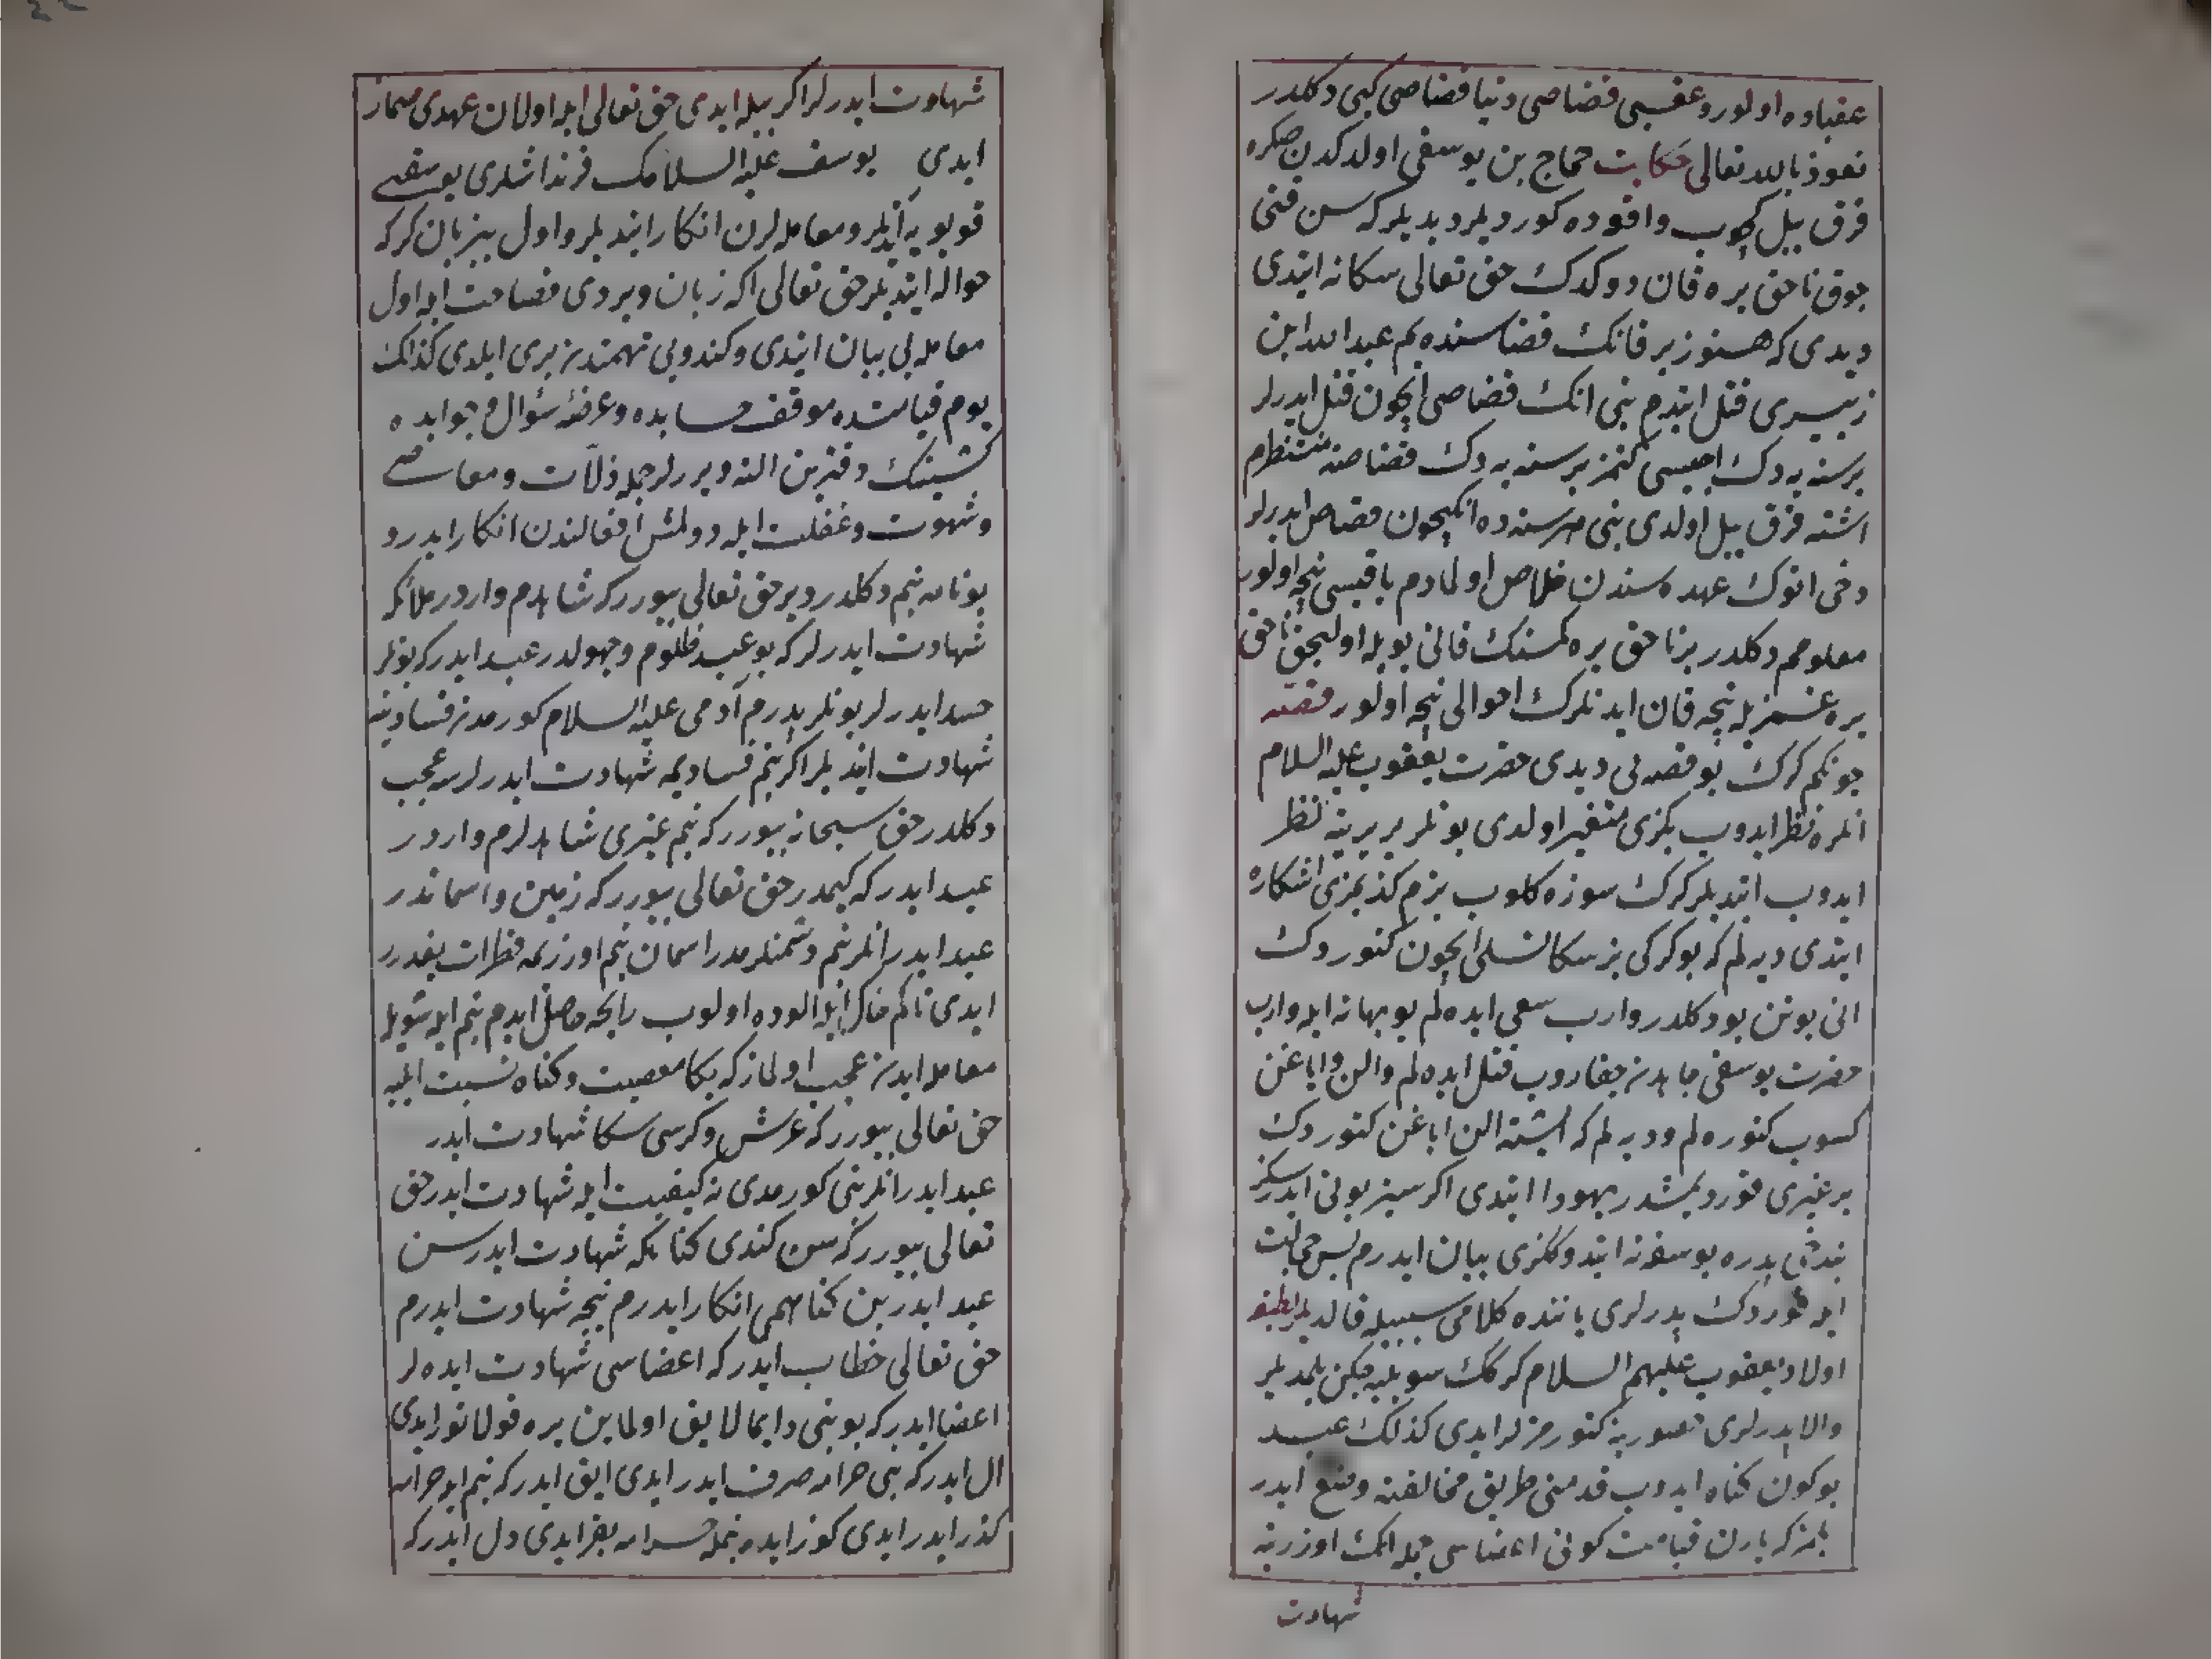 عقباده اولور و عقبی قضاصی دنیا قضاصی کبی دکلدر
نعوذ بالله تعالی حکایت حجاج بن یوسفی اولدکدن صکره
قرق ییل کچوب واقعه ده کوردیلر دیدیلر که سن قتی
چوق ناحق یره قان دوکدک حق تعالی سکا نه ایتدی
دیدی که هنوز بر قانک قضاسنده یم عبد الله ابن
زبیری قتل ایتدم بنی انک قضاصی ایچون قتل ایدرلر
برسنه یه دک اجیسی کتمز برسنه یه دک قضاصنه منتظرم
اشته قرق ییل اولدی بنی هر سنه ده انکیچون قضاص ایدرلر
دخی انوک عهده سندن خلاص اولمادم باقیسی نیجه اولور
معلومم دکلدر بر ناحق یره کمسنک قانی بویله اولیجق ناحق
یره نیجه قان ایدنلرک احوالی نیجه اولور قصه
چونکم کرک بو قصه یی دیدی حضرت یعقوب علیه السلام
انلره نظر ایدوب بکزی متغیر اولدی بونلر بر برینه نظر
ایدوب ایتدیلر کرک سوزه کلوب بزم کذبمزی اشکاره
ایتدی دیه لم که بو کرکی بز سکا تسلی ایچون کتوردک
انی یوتن بو دکلدر وارب سعی ایده لم بو بهانه ایله وارب
حضرت یوسفی چاهدنز چقاروب قتل ایده لم و الن و ایاغن
کسوب کتوره لم و دیه لم که اشته الن ایاغن کتوردک
بر غیری قورد یمشدر یهودا ایتدی اکر سیز بونی ایدرسکز
بن دخی پدره یوسفه نه ایتدوککزی بیان ایدرم پس خجالت
ایله طوردک پدرلری یاننده کلامی سببیله قالدیلر لطیفه
اولاد یعقوب علیهم السلام کرکک سویلیه جکن بلمدیلر
والا پدرلری حضورینه کتورمزلر ایدی کذلک عبد
بو کون کناه ایدوب قدمنی طریق مخالفته وضع ایدر
بلمز که یارن قیامت کونی اعضاسی جمله انک اوزرینه
شهادت
شهادت ایدرلر اکر بیله ایدی حق تعالی ایله اولان عهدی صماز
ایدی یوسف علیه السلامک قرنداشلری یوسفی
قویویه آتدیلر و معامله لرن انکار ایتدیلر و اول بی زبان کرکه
حواله ایتدیلر حق تعالی اکه زبان ویردی فصاحت ایله اول
معامله یی بیان ایتدی و کندویی تهمتدن بری ایلدی کذلک
یوم قیامتده موقف حسابده و عرضهٔ سؤال و جوابده
کشینک دفترین النه ویررلر جمله ذلّات و معاصی
و شهوت و غفلت ایله دولمش افعالندن انکار ایدر و
بو نامه بنم دکلدر دیر حق تعالی بیورر که شاهدم واردر ملائکه
شهادت ایدرلر که بو عبد ظلوم و جهولدر عبد ایدر که بونلر
حسد ایدرلر بونلر پدرم آدمی علیه السلام کورمدن فسادینه
شهادت ایتدیلر اکر بنم فسادیمه شهادت ایدرلرسه عجب
دکلدر حق سبحانه بیورر که بنم غیری شاهدلرم واردر
عبد ایدر که کیمدر حق تعالی بیورر که زمین و اسماندر
عبد ایدر انلر بنم دشمنلرمدر اسمان بنم اوزریمه قطرات یغدرر
ایدی تاکم خاکی ایله الوده اولوب رایحه حاصل ایدم بنم ایله شویله
معامله ایدن عجب اولماز که بکا معصیت و کناه نسبت ایلیه
حق تعالی بیورر که عرش و کرسی سکا شهادت ایدر
عبد ایدر انلر بنی کورمدی نه کیفیت ایله شهادت ایدر حق
تعالی بیورر که سن کندی کناهکه شهادت ایدرسن
عبد ایدر بن کناهمی انکار ایدرم نیجه شهادت ایدرم
حق تعالی خطاب ایدر که اعضاسی شهادت ایده لر
اعضا ایدر که بو بنی دایما لایق اولماین یره قوللانور ایدی
ال ایدر که بنی حرامه صرف ایدر ایدی ایاق ایدر که بنم ایله حرامه
کذر ایدر ایدی کوز ایده بنمله حرامه بقر ایدی دل ایدر که